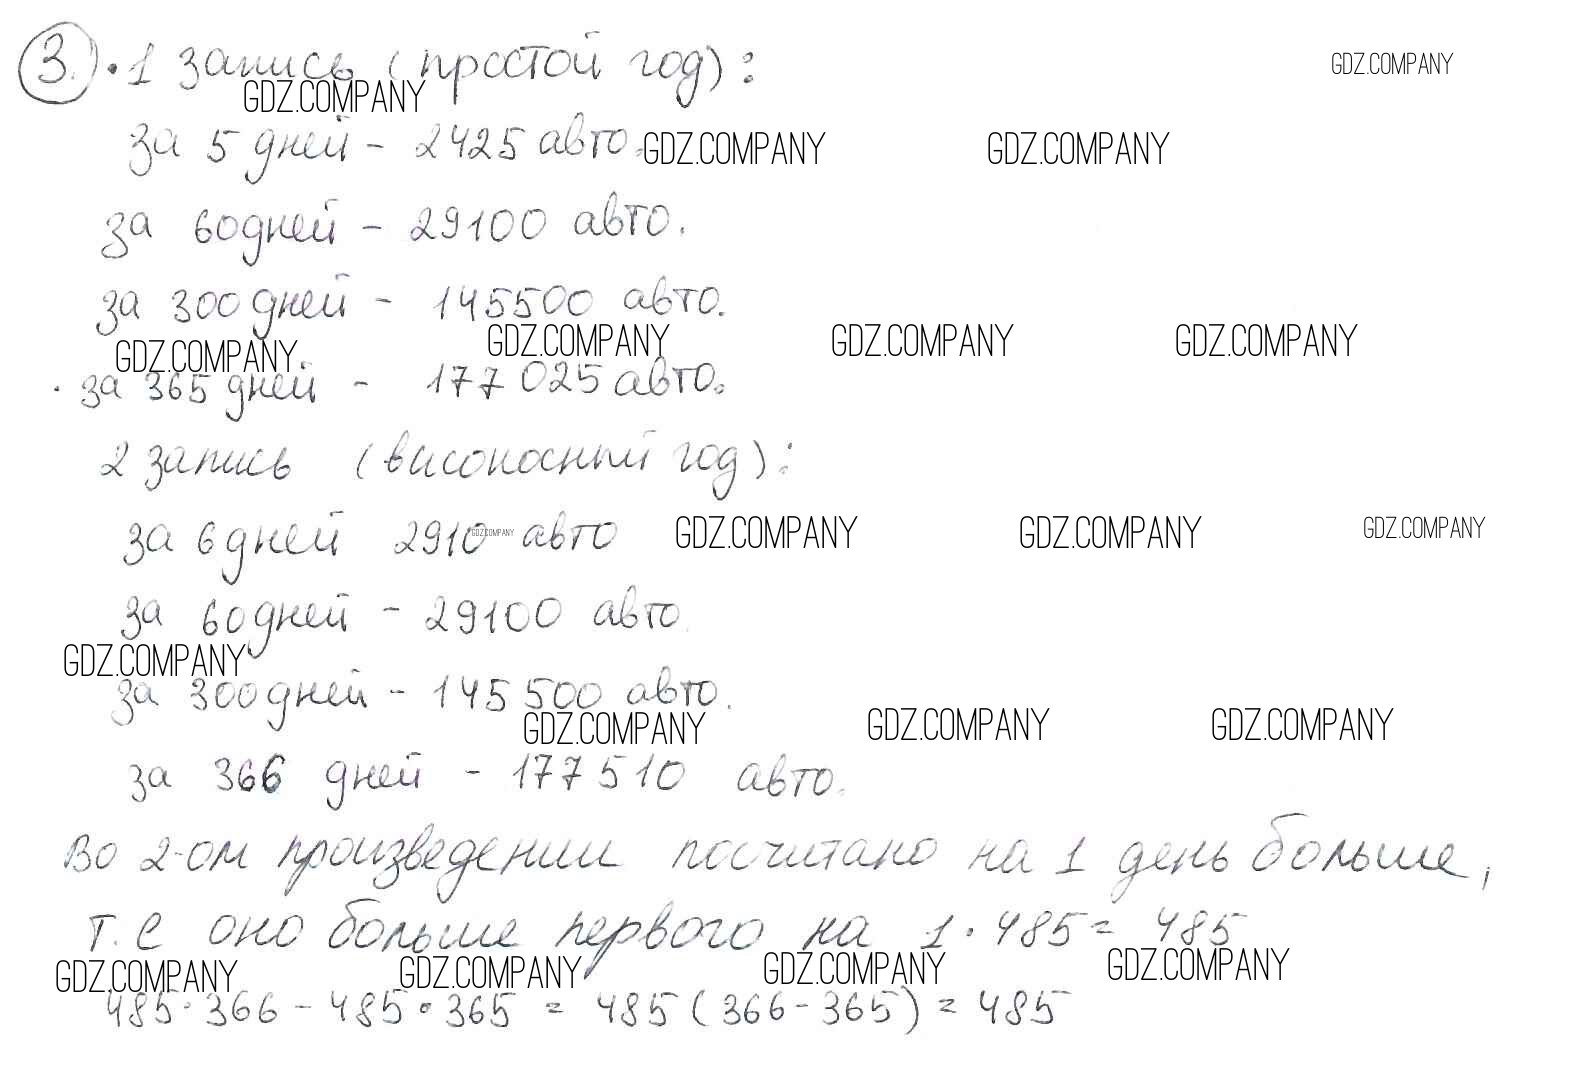 3. • 1 запись (простой год): GDZ.COMPANY
GDZ.COMPANY
за 5 дней - 2425 авто. GDZ.COMPANY GDZ.COMPANY
за 60 дней - 29100 авто.
за 300 дней - 145500 авто.
GDZ.COMPANY GDZ.COMPANY GDZ.COMPANY GDZ.COMPANY
• за 365 дней - 177025 авто.
2 запись (високосный год):
за 6 дней 2910 авто GDZ.COMPANY GDZ.COMPANY GDZ.COMPANY GDZ.COMPANY
за 60 дней - 29100 авто.
GDZ.COMPANY
за 300 дней - 145500 авто.
GDZ.COMPANY GDZ.COMPANY GDZ.COMPANY
за 366 дней - 177510 авто.
Во 2-ом произведении посчитано на 1 день больше,
т.е оно больше первого на 1 · 485 = 485
GDZ.COMPANY GDZ.COMPANY GDZ.COMPANY GDZ.COMPANY
485 · 366 - 485 · 365 = 485 (366 - 365) = 485